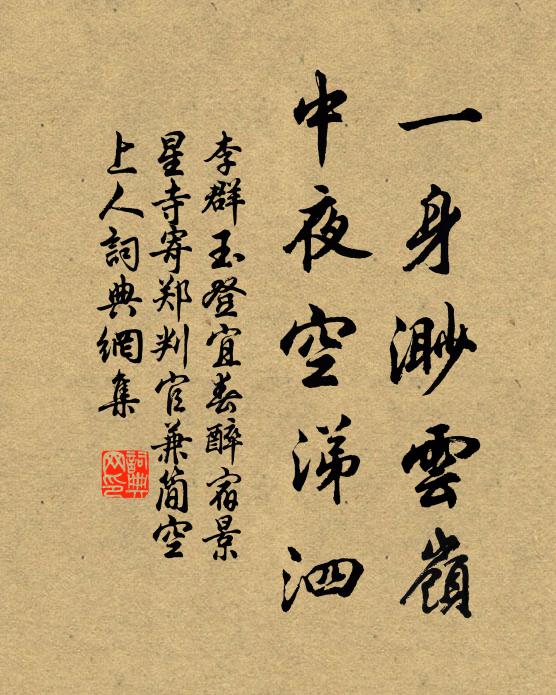 一身渺雲嶺
中夜空涕泗
李群玉登宜春醉宿景
星寺寄郑判官兼简空
上人詞典網集
詞典
网印